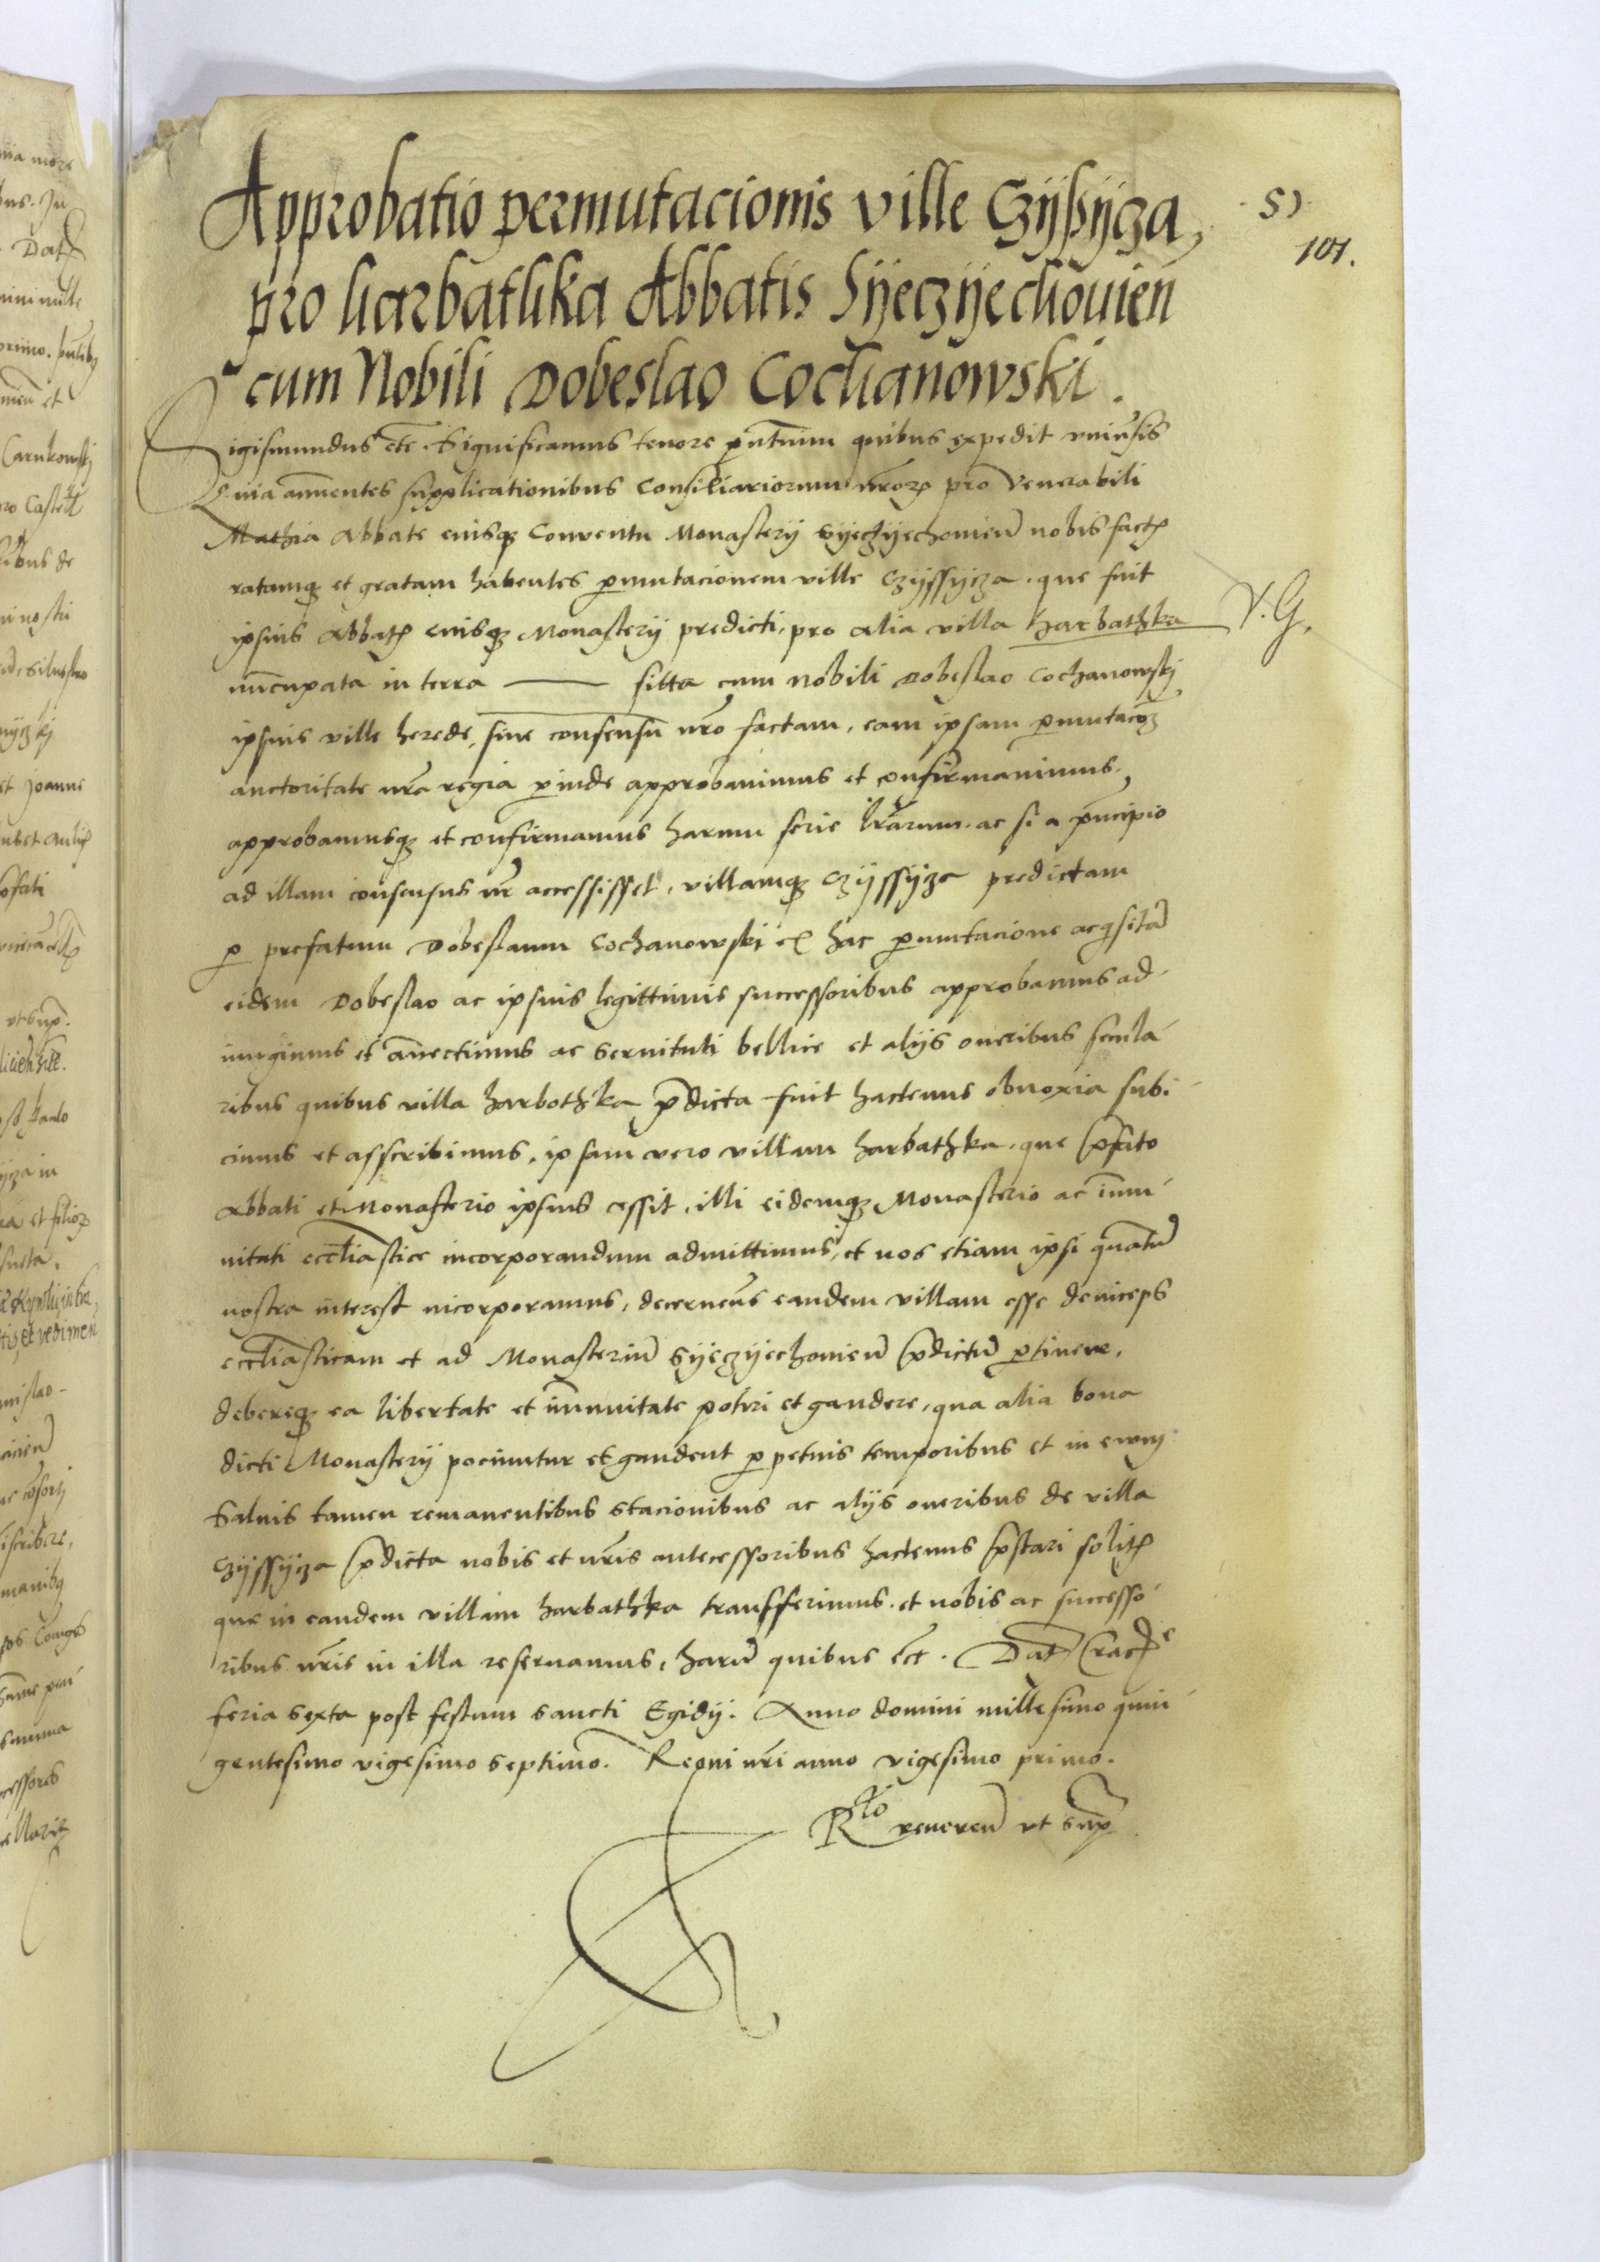 Approbatio permutacionis ville Czyssycza,
pro harbathka Abbatis Syeczyechouien
cum Nobili Dobeslao Cochanowski.
51
101.
Sigismundus etc. Significamus tenore pntium quibus expedit vniusis
Quia annuentes supplicationibus Consiliariorum nror pro Venerabili
Mathia Abbate eiusq Conventu Monastery Syeczyechouien nobis fact
ratamq et gratam habentes pmutacionem ville Czyssycza. que fuit
ipsius Abbat eiusq Monastery predicti, pro alia villa harbathka
V. G.
nuncupata in terra —— sitta cum nobili Dobeslao Cochanowski
ipsius ville herede, sine consensu nro factam, eam ipsam pmutacoz
auctoritate nra regia pinde approbauimus et confirmauimus,
approbamusq et confirmamus harum serie lrarum. ac si a pncipio
ad illam consensus nr accessisset, villamq Czyssycza predictam
p prefatum Dobeslaum Cochanowski ex hac pmutacione acqsita
eidem Dobeslao ac ipsius legittimis successoribus approbamus ad
iungimus et annectimus ac seruituti bellice et alys oneribus secula
ribus quibus villa harbothka pdicta fuit hactenus obnoxia subi
cimus et asscribimus, ipsam vero villam harbathka. que pfato
Abbati et Monasterio ipsius cessit, illi eidemq Monasterio ac immu
nitati eccliastice incorporandum admittimus, et nos etiam ipsi quatu
nostra interest incorporamus, decernens eandem villam esse deinceps
eccliasticam et ad Monasteriu Syeczyechouien pdictu ptinere,
debereq ea libertate et immunitate potiri et gaudere, qua alia bona
dicti Monastery pociuntur et gaudent p petuis temporibus et in ewm
Saluis tamen remanentibus stacionibus ac alys oneribus de villa
Czyssycza pdicta nobis et nris antecessoribus hactenus pstari solit
que in eandem villam harbathka transferimus. et nobis ac successo
ribus nris in illa reseruamus, haru quibus etc. Dat Crac
feria sexta post festum sancti Egidy. Anno domini millesimo quin
gentesimo vigesimo septimo. Regni nri anno vigesimo primo.
Rtio reueren vt sup